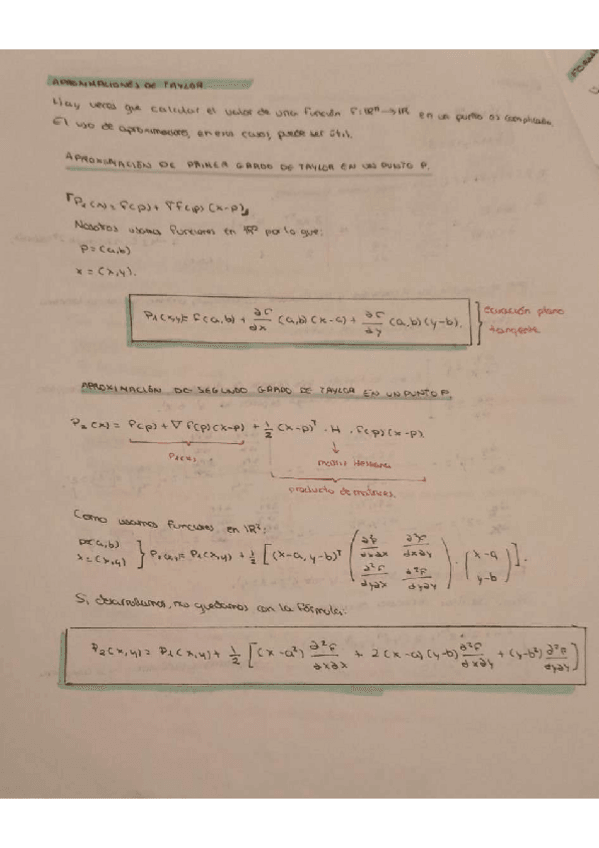 APROXIMACIONES DE TAYLOR
Hay veces que calcular el valor de una función F: ℝⁿ → ℝ en un punto es complicado.
El uso de aproximaciones, en esos casos, puede ser útil.
APROXIMACIÓN DE PRIMER GRADO DE TAYLOR EN UN PUNTO P.
P₁(x) = F(p) + ∇F(p)(x-p)
Nosotros usamos funciones en ℝ² por lo que:
p = (a,b)
x = (x,y).
P₁(x,y) = F(a,b) + ∂F/∂x (a,b)(x-a) + ∂F/∂y (a,b)(y-b). } Ecuación plano
tangente
APROXIMACIÓN DE SEGUNDO GRADO DE TAYLOR EN UN PUNTO P.
P₂(x) = F(p) + ∇F(p)(x-p) + 1/2 (x-p)ᵀ · H · F(p)(x-p)
P₁(x)
↓
matriz Hessiana
producto de matrices.
Como usamos funciones en ℝ²:
p = (a,b)
x = (x,y) } P₂(x,y) = P₁(x,y) + 1/2 [(x-a, y-b)ᵀ (∂²F/∂x∂x ∂²F/∂x∂y
∂²F/∂y∂x ∂²F/∂y∂y) · (x-a
y-b)].
Si desarrollamos, nos quedamos con la fórmula:
P₂(x,y) = P₁(x,y) + 1/2 [(x-a²) ∂²F/∂x∂x + 2(x-a)(y-b) ∂²F/∂x∂y + (y-b²) ∂²F/∂y∂y]